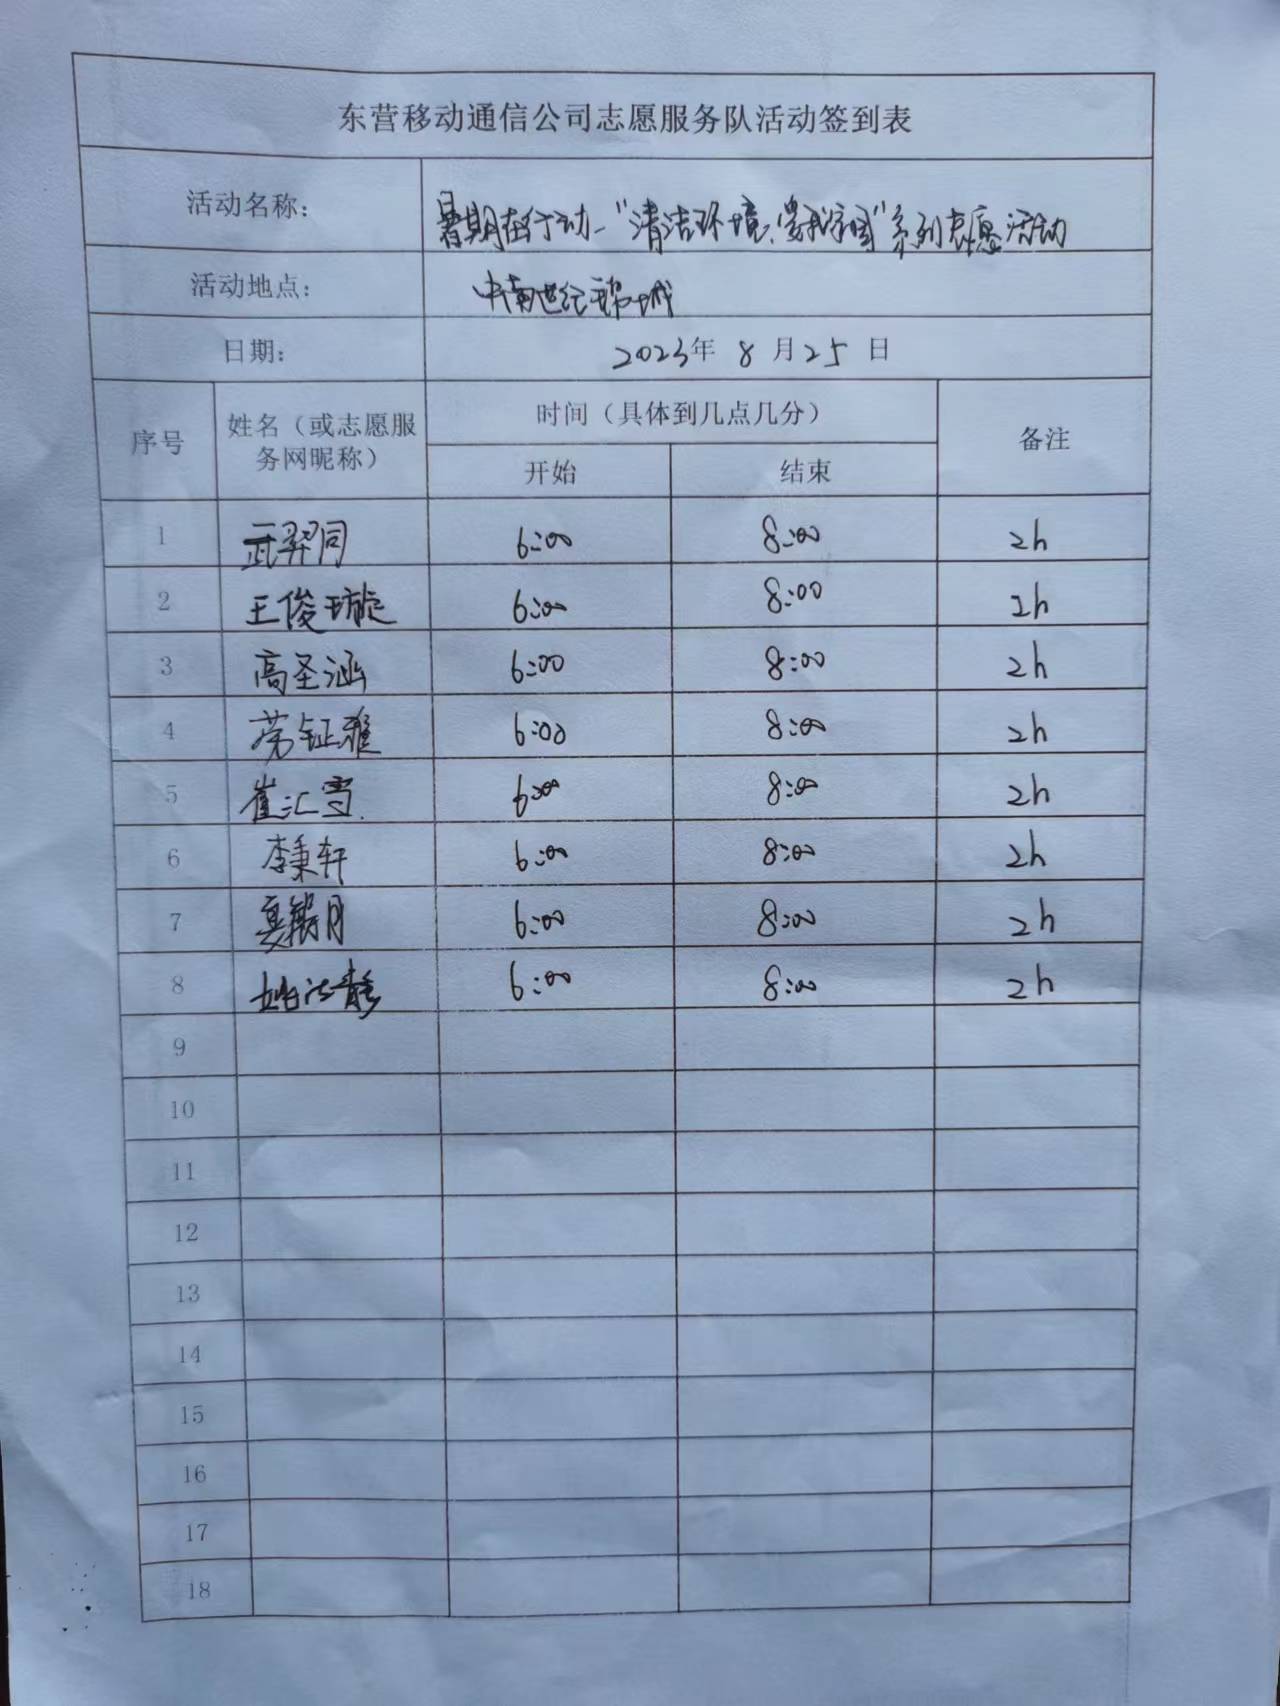 东营移动通信公司志愿服务队活动签到表
活动名称： 暑期在行动-“清洁环境、爱我家园”系列志愿活动
活动地点： 中南世纪锦城
日期： 2023年 8 月 25 日
序号 姓名（或志愿服务网昵称） 时间（具体到几点几分） 备注
开始 结束
1 武羿同 6:00 8:00 2h
2 王俊璇 6:00 8:00 2h
3 高圣涵 6:00 8:00 2h
4 劳钲雅 6:00 8:00 2h
5 崔汇雪 6:00 8:00 2h
6 李秉轩 6:00 8:00 2h
7 6:00 8:00 2h
8 6:00 8:00 2h
9
10
11
12
13
14
15
16
17
18